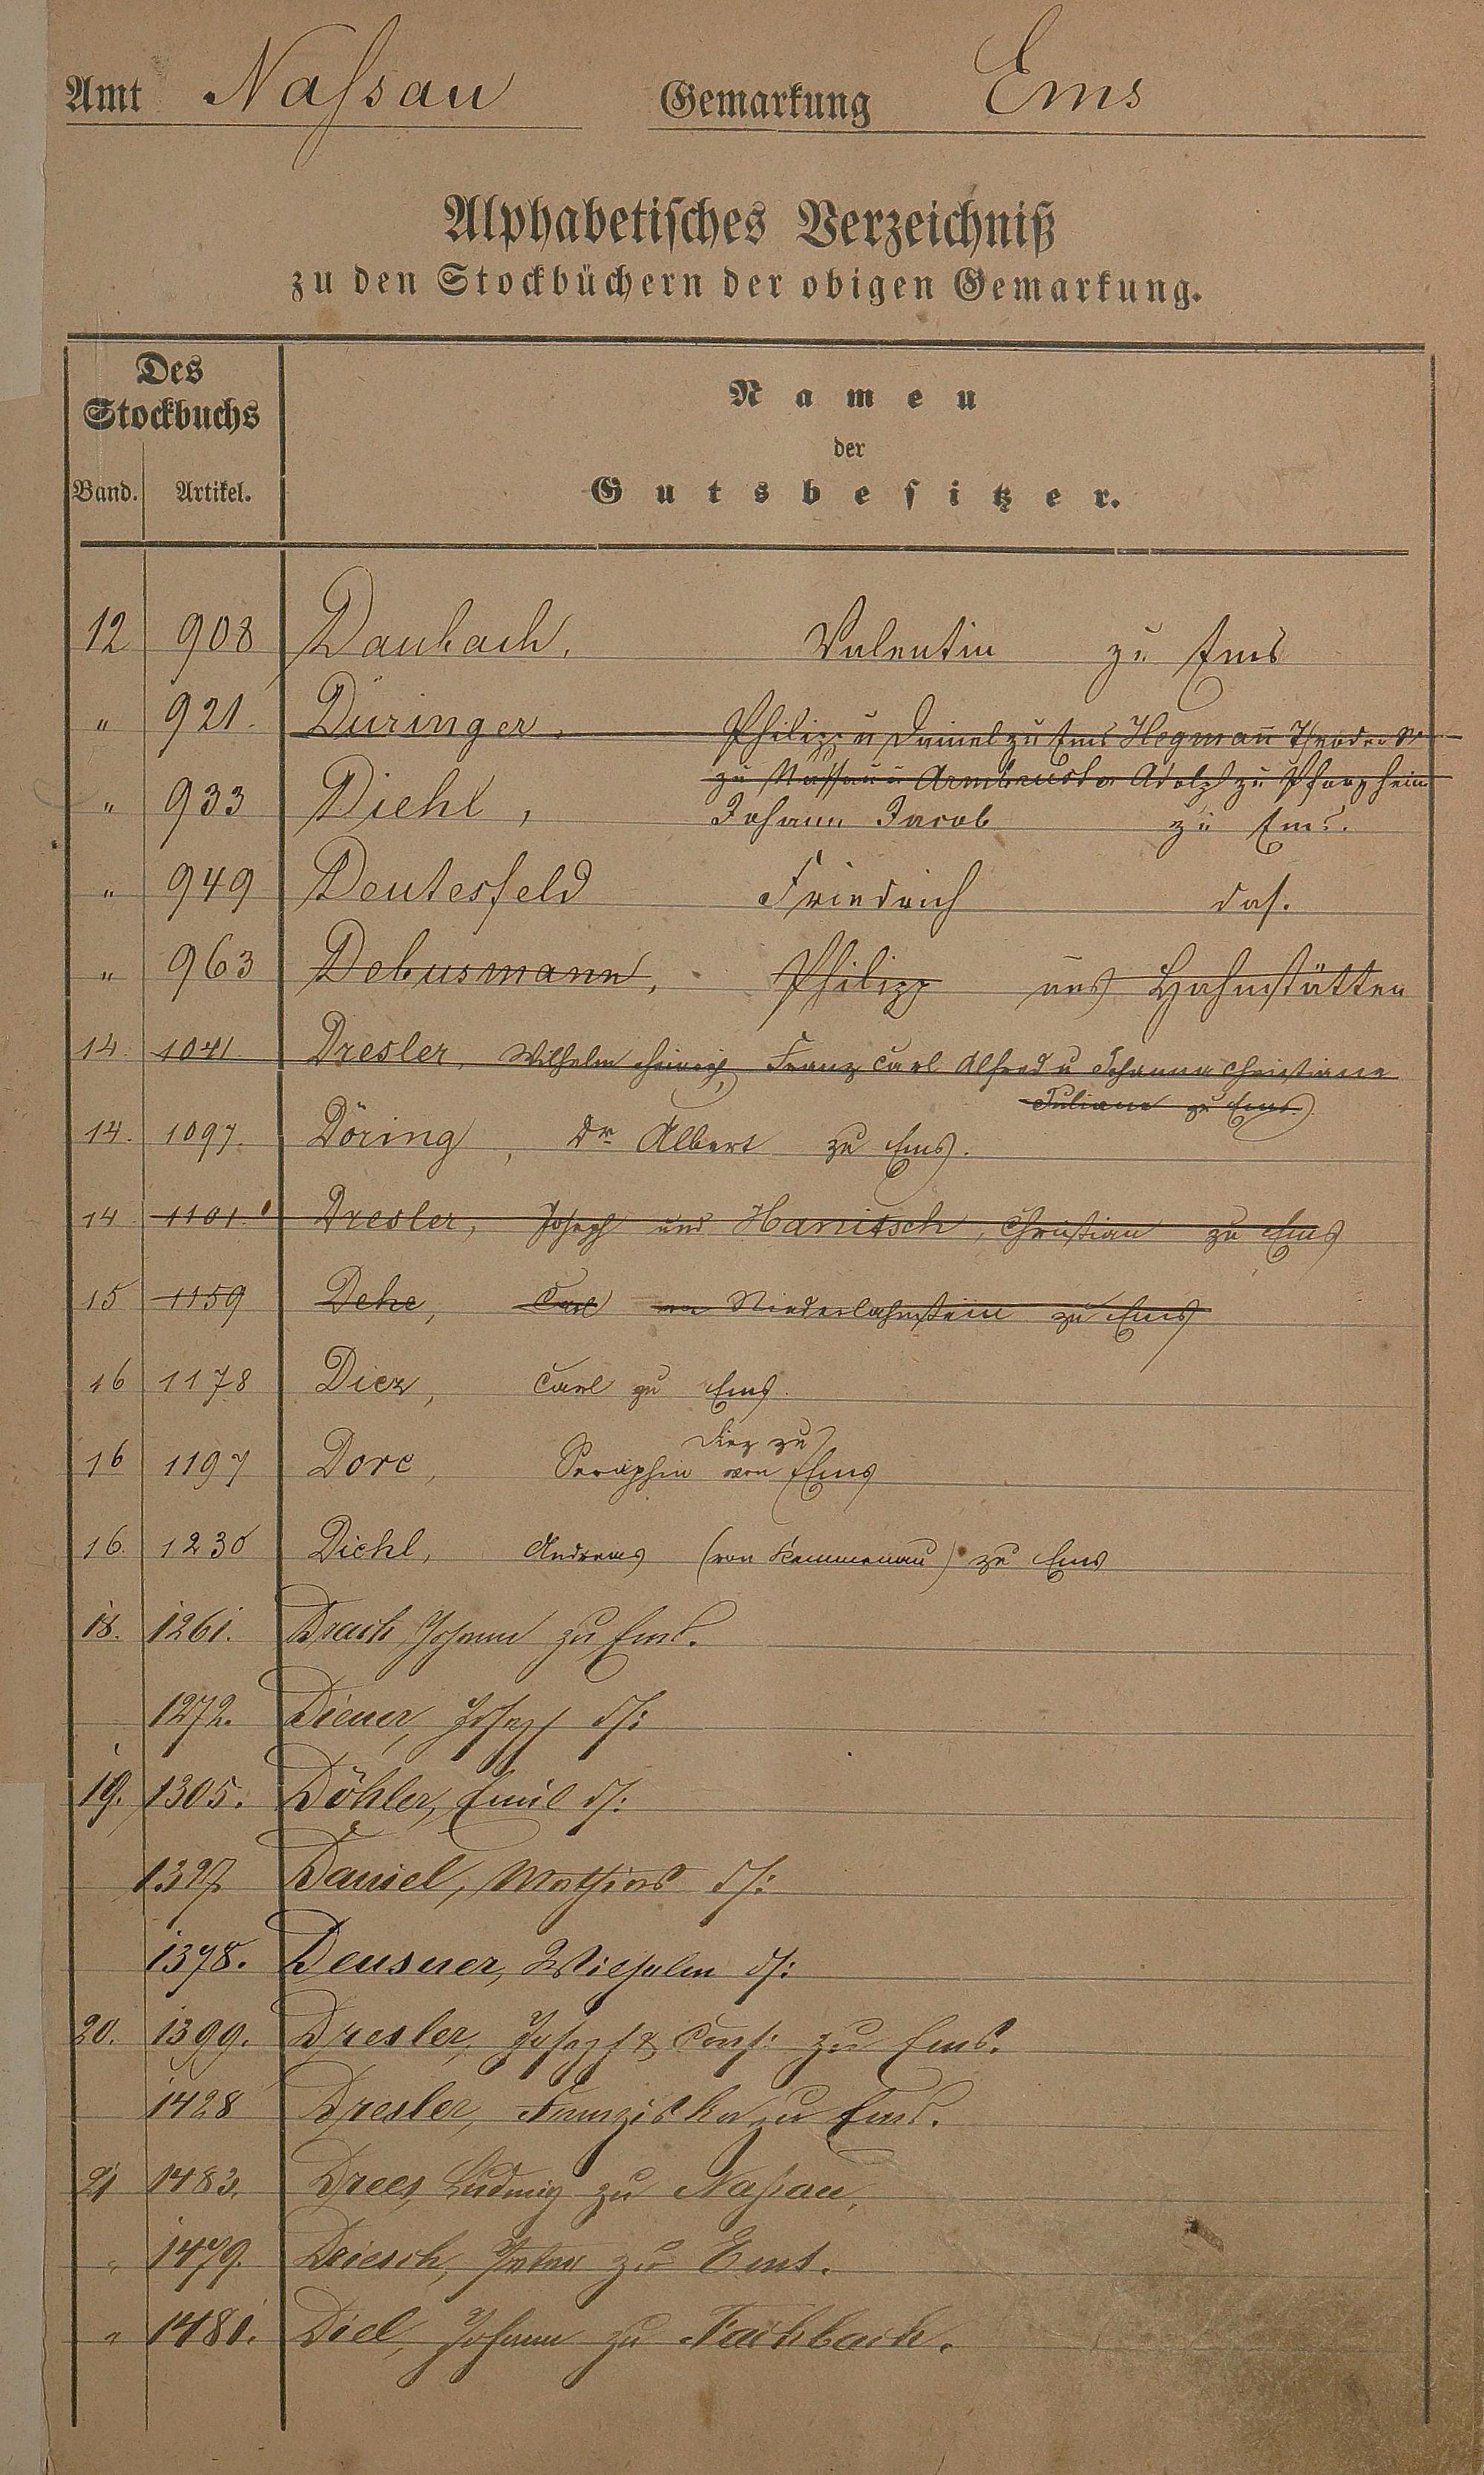 Amt Nassau Gemarkung Ems
Alphabetisches Verzeichniß
zu den Stockbüchern der obigen Gemarkung.
Des Stockbuchs
Namen
der
Band. Artikel. Gutsbesitzer.
12 908 Daubach, Valentin zu Ems
" 921. Düringer, Philipp u Daniel zu Ems Hegmañ
zu Nassau u Armbruster Adolph zu Pforzheim
" 933 Diehl, Johann Jacob zu Ems.
" 949 Deutesfeld Friedrich das.
" 963 Debusmann, Philipp aus Hahnstätten
14. 1041 Dresler, Wilhelm Heinrich, Franz Carl Alfred u Johanna Christiane
Juliane zu Ems
14. 1097. Döring, Dr Albert zu Ems.
14 1101. Dresler, Joseph und Hanitsch, Christian zu Ems
15 1159 Dehe, Carl von Niederlahnstein zu Ems
16 1178 Diez, Carl zu Ems.
Diez zu
16 1197 Dore, Seraphin von Ems
16. 1230 Diehl, Andreas (von Kemmenau) zu Ems
18. 1261. Drach, Johann zu Ems.
1272. Diener, Joseph ds:
19. 1305. Döhler, Emil ds:
1327 Daniel, Mathias ds:
1378. Deusner, Wilhelm ds:
20. 1399. Dresler, Joseph & Cons: zu Ems.
1428 Dresler, Franziska zu Ems.
21 1483. Drees, Ludwig zu Nassau,
" 1479. Driesch, Peter zu Ems.
" 1481. Diel, Johann zu Fachbach.